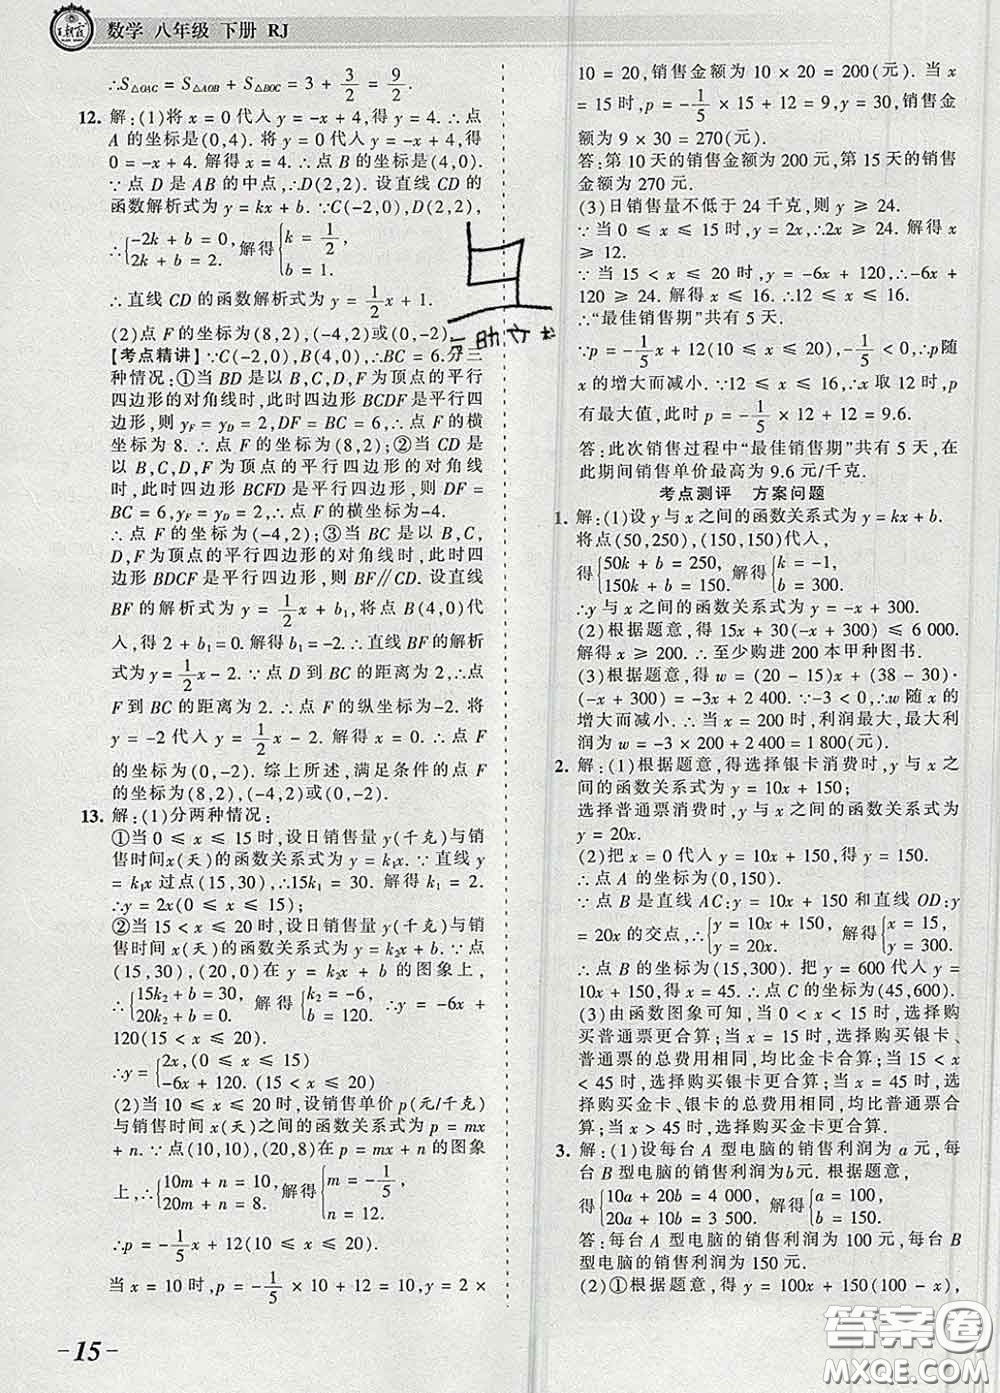 王朝霞 数学 八年级 下册 RJ
∴S△OAC = S△AOB + S△BOC = 3 + 3/2 = 9/2.
12. 解:(1)将 x = 0 代入 y = -x + 4,得 y = 4. ∴点
A 的坐标为(0,4). 将 y = 0 代入 y = -x + 4,得
0 = -x + 4. 解得 x = 4. ∴点 B 的坐标为(4,0).
∵点 D 是 AB 的中点,∴D(2,2). 设直线 CD 的
函数解析式为 y = kx + b. ∵C(-2,0),D(2,2),
∴{-2k + b = 0, 2k + b = 2. 解得{k = 1/2, b = 1.
∴直线 CD 的函数解析式为 y = 1/2 x + 1.
(2)点 F 的坐标为(8,2),(-4,2)或(0,-2).
【考点精讲】∵C(-2,0),B(4,0),∴BC = 6.分三
种情况:①当 BD 是以 B,C,D,F 为顶点的平行
四边形的对角线时,此时四边形 BCDF 是平行四
边形,则 yF = yD = 2,DF = BC = 6,∴点 F 的横
坐标为 8. ∴点 F 的坐标为(8,2);②当 CD 是
以 B,C,D,F 为顶点的平行四边形的对角线
时,此时四边形 BCFD 是平行四边形,则 DF =
BC = 6,yF = yD = 2,∴点 F 的横坐标为-4.
∴点 F 的坐标为(-4,2);③当 BC 是以 B,C,
D,F 为顶点的平行四边形的对角线时,此时四
边形 BDCF 是平行四边形,则 BF∥CD. 设直线
BF 的解析式为 y = 1/2 x + b1,将点 B(4,0)代
入,得 2 + b1 = 0. 解得 b1 = -2. ∴直线 BF 的解析
式为 y = 1/2 x - 2. ∵点 D 到 BC 的距离为 2,∴点
F 到 BC 的距离为 2. ∴点 F 的纵坐标为-2. 将
y = -2 代入 y = 1/2 x - 2,解得 x = 0. ∴点 F
的坐标为(0,-2). 综上所述,满足条件的点 F
的坐标为(8,2),(-4,2)或(0,-2).
13. 解:(1)分两种情况:
①当 0 ≤ x ≤ 15 时,设日销售量 y(千克)与销
售时间x(天)的函数关系式为 y = k1x. ∵直线 y
= k1x 过点(15,30),∴15k1 = 30. 解得 k1 = 2.
∴y = 2x(0 ≤ x ≤ 15);
②当 15 < x ≤ 20 时,设日销售量 y(千克)与
销售时间 x(天)的函数关系式为 y = k2x + b. ∵点
(15,30),(20,0)在 y = k2x + b 的图象上,
∴{15k2 + b = 30, 20k2 + b = 0. 解得{k2 = -6, b = 120. ∴y = -6x +
120(15 < x ≤ 20).
∴y = {2x,(0 ≤ x ≤ 15) -6x + 120. (15 < x ≤ 20)
(2)当 10 ≤ x ≤ 20 时,设销售单价 p(元/千克)
与销售时间 x(天)之间的函数关系式为 p = mx
+ n. ∵点(10,10),(20,8)在 p = mx + n 的图象
上,∴{10m + n = 10, 20m + n = 8. 解得{m = -1/5, n = 12.
∴p = -1/5 x + 12(10 ≤ x ≤ 20).
当 x = 10 时,p = -1/5 × 10 + 12 = 10,y = 2 ×
-15-
10 = 20,销售金额为 10 × 20 = 200(元). 当 x
= 15 时,p = -1/5 × 15 + 12 = 9,y = 30,销售金
额为 9 × 30 = 270(元).
答:第 10 天的销售金额为 200 元,第 15 天的销售
金额为 270 元.
(3)日销售量不低于 24 千克,则 y ≥ 24.
∵当 0 ≤ x ≤ 15 时,y = 2x,∴2x ≥ 24. 解得 x
≥ 12.
∵当 15 < x ≤ 20 时,y = -6x + 120,∴-6x +
120 ≥ 24. 解得 x ≤ 16. ∴12 ≤ x ≤ 16.
∴“最佳销售期”共有 5 天.
∵p = -1/5 x + 12(10 ≤ x ≤ 20),-1/5 < 0,∴p随
x 的增大而减小. ∵12 ≤ x ≤ 16,∴x 取 12 时,p
有最大值,此时 p = -1/5 × 12 + 12 = 9.6.
答:此次销售过程中“最佳销售期”共有 5 天,在
此期间销售单价最高为 9.6 元/千克.
考点测评 方案问题
1. 解:(1)设 y 与 x 之间的函数关系式为 y = kx + b.
将点(50,250),(150,150)代入,
得{50k + b = 250, 150k + b = 150. 解得{k = -1, b = 300.
∴y 与 x 之间的函数关系式为 y = -x + 300.
(2)根据题意,得 15x + 30(-x + 300) ≤ 6 000.
解得 x ≥ 200. ∴至少购进 200 本甲种图书.
(3)根据题意,得 w = (20 - 15)x + (38 - 30)·
(-x + 300) = -3x + 2 400. ∵-3 < 0,∴w 随 x 的
增大而减小. ∴当 x = 200 时,利润最大,最大
利润为 w = -3 × 200 + 2 400 = 1 800(元).
2. 解:(1)根据题意,得选择银卡消费时,y 与 x 之
间的函数关系式为 y = 10x + 150;
选择普通票消费时,y 与 x 之间的函数关系式为
y = 20x.
(2)把 x = 0 代入 y = 10x + 150,得 y = 150.
∴点 A 的坐标为(0,150).
∵点 B 是直线 AC:y = 10x + 150 和直线 OD:y
= 20x 的交点,∴{y = 10x + 150, y = 20x. 解得{x = 15, y = 300.
∴点 B 的坐标为(15,300). 把 y = 600 代入 y =
10x + 150,得 x = 45. ∴点 C 的坐标为(45,600).
(3)由函数图象可知,当 0 < x < 15 时,选择购
买普通票更合算;当 x = 15 时,选择购买银卡、
普通票的总费用相同,均比金卡合算;当 15 < x
< 45 时,选择购买银卡更合算;当 x = 45 时,选
择购买金卡、银卡的总费用相同,均比普通票合
算;当 x > 45 时,选择购买金卡更合算.
3. 解:(1)设每台 A 型电脑的销售利润为 a元,每
台 B 型电脑的销售利润为b元. 根据题意,
得{10a + 20b = 4 000, 20a + 10b = 3 500. 解得{a = 100, b = 150.
答:每台 A 型电脑的销售利润为 100 元,每台 B
型电脑的销售利润为 150 元.
(2)①根据题意,得 y = 100x + 150(100 - x),
答案圈
MXQE.COM